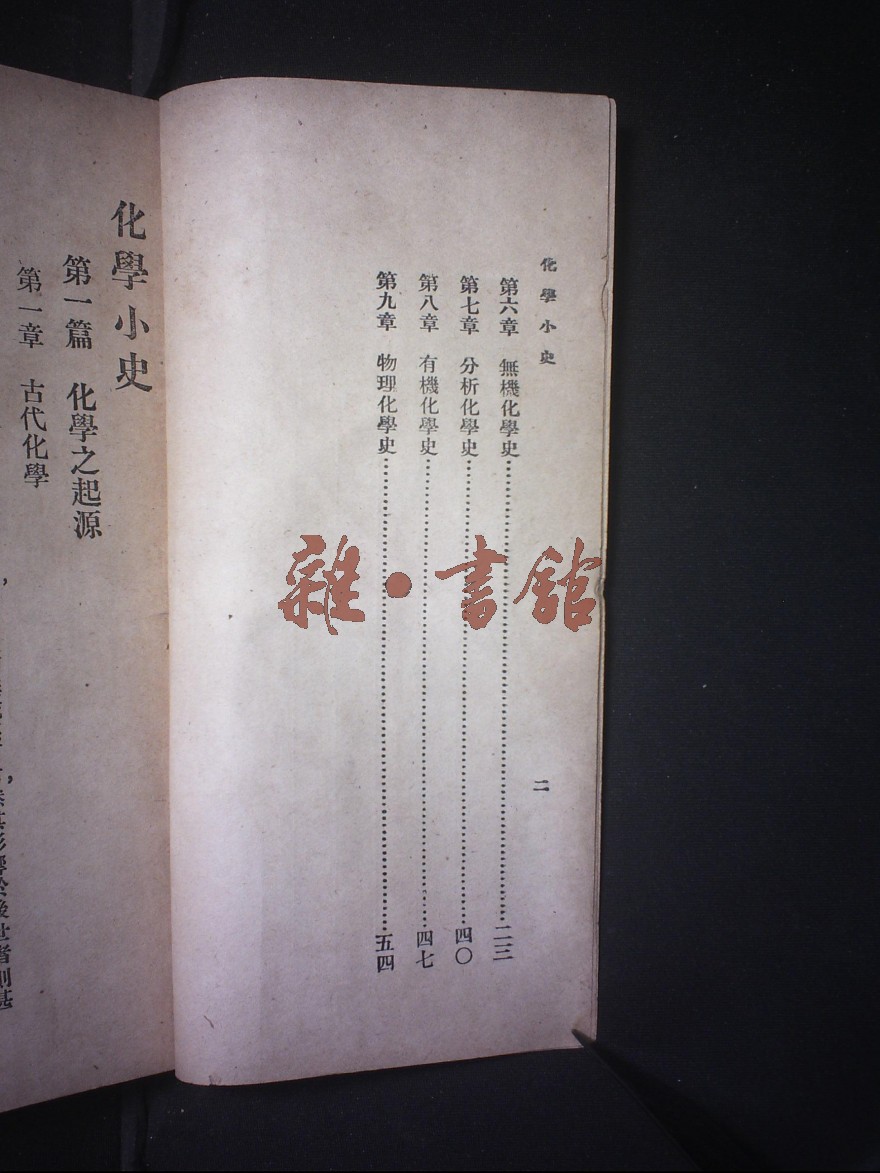 化學小史
第六章 無機化學史……二三
第七章 分析化學史……四〇
第八章 有機化學史……四七
第九章 物理化學史……五四
二
雜·書館
化學小史
第一篇 化學之起源
第一章 古代化學
其影響於後世者則甚